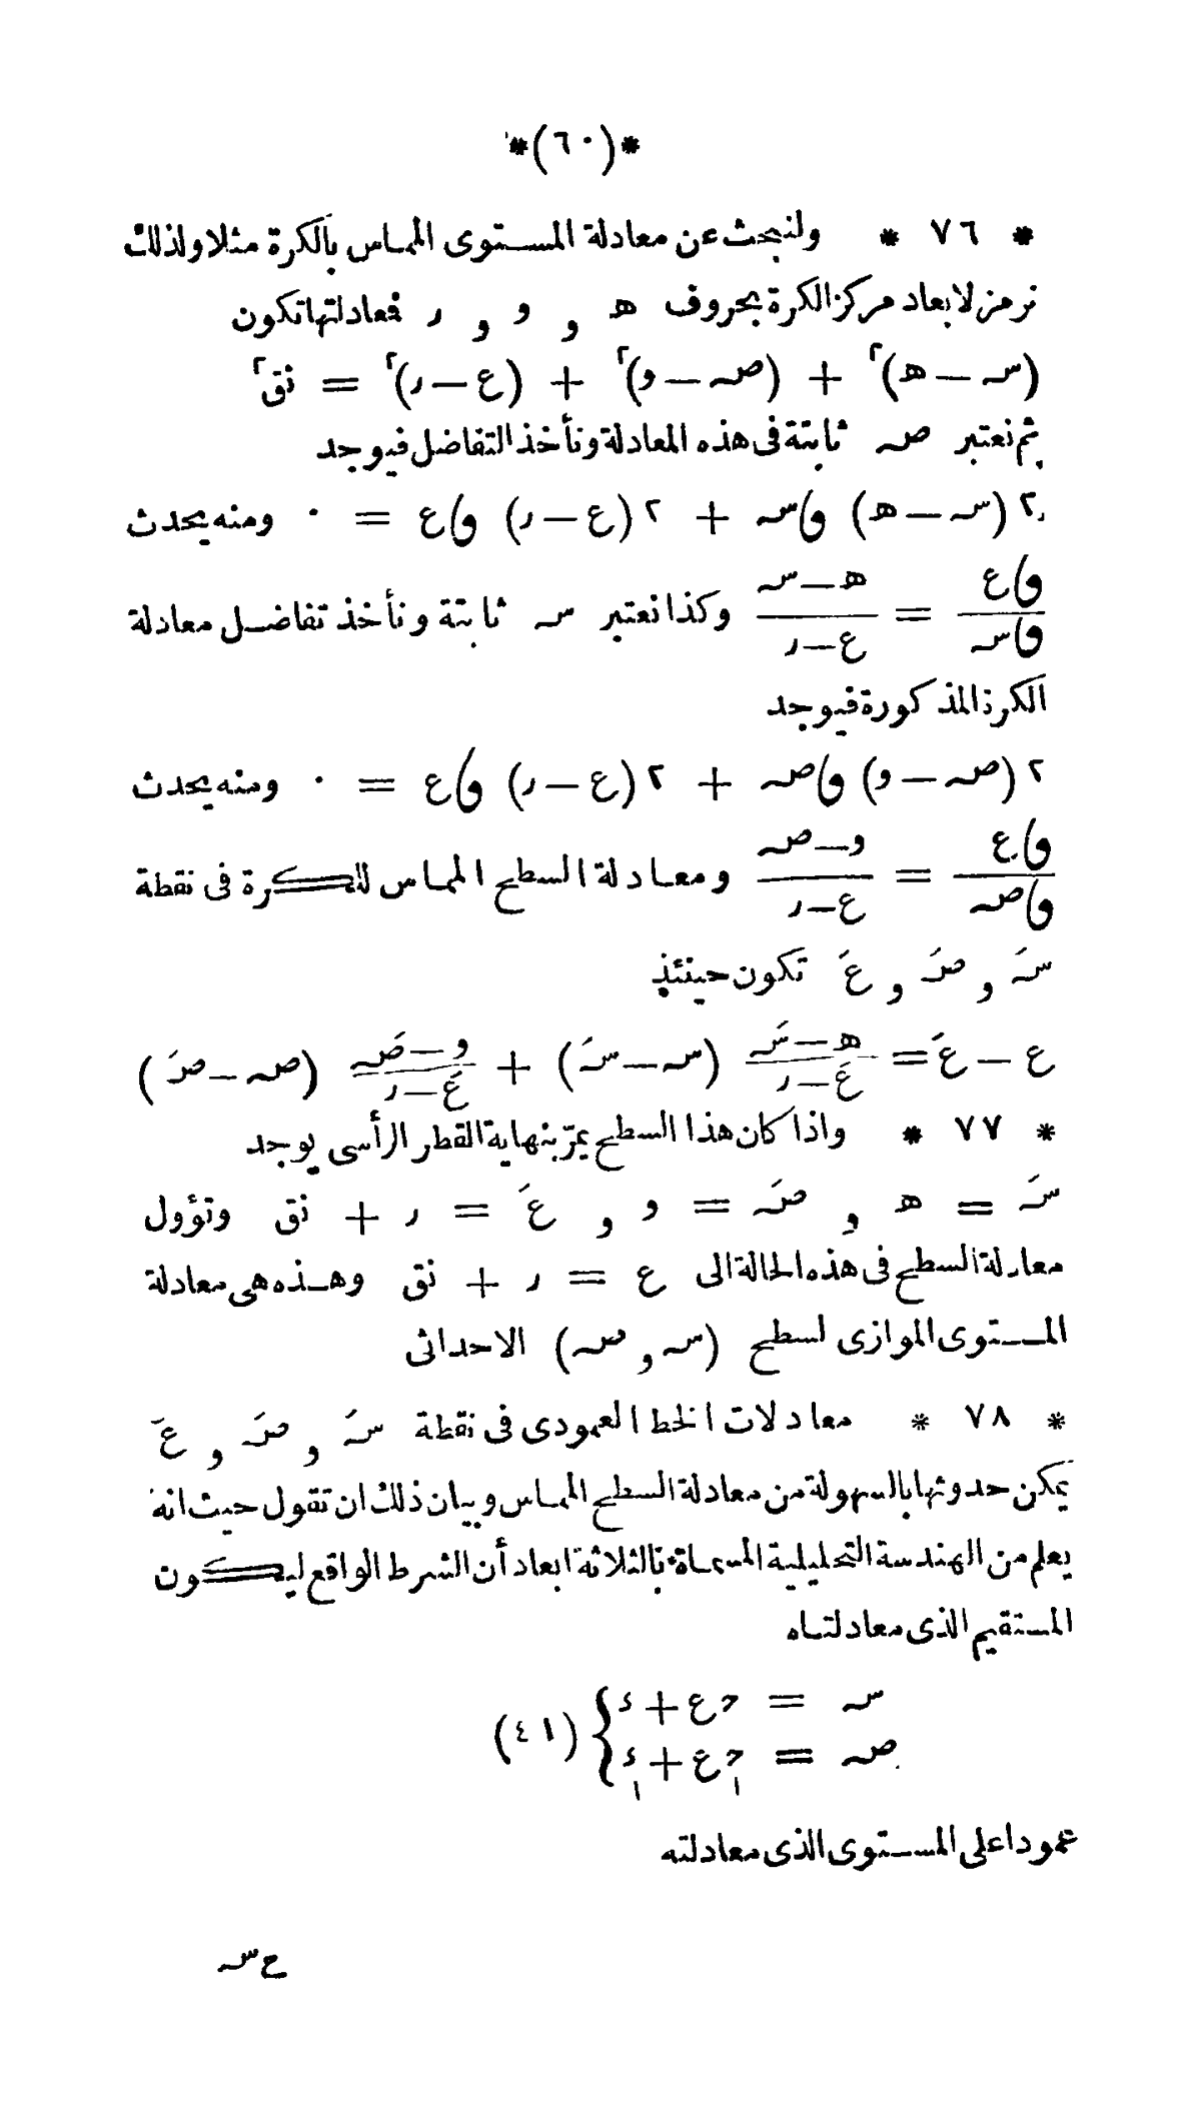 *(٦٠)*
* ٧٦ * ولنبحث عن معادلة المستوى المماس بالكرة مثلا ولذلك
نرمز لابعاد مركز الكرة بحروف ه و و و ر فعادلتها تكون
(سـ - ه)٢ + (صـ - و)٢ + (ع - ر)٢ = نق٢
ثم نعتبر صـ ثابتة فى هذه المعادلة ونأخذ التفاضل فيوجد
٢ (سـ - ه) ﻭاسـ + ٢ (ع - ر) ﻭاع = ٠ ومنه يحدث
ﻭاع / ﻭاسـ = ه - سـ / ع - ر وكذا نعتبر سـ ثابتة ونأخذ تفاضل معادلة
الكرة المذكورة فيوجد
٢ (صـ - و) ﻭاصـ + ٢ (ع - ر) ﻭاع = ٠ ومنه يحدث
ﻭاع / ﻭاصـ = و - صـ / ع - ر ومعادلة السطح المماس للكرة فى نقطة
سـَ و صـَ و عَ تكون حينئذ
ع - عَ = ه - سـَ / عَ - ر (سـ - سـَ) + و - صـَ / عَ - ر (صـ - صـَ)
* ٧٧ * واذا كان هذا السطح يمرّ بنهاية القطر الرأسى يوجد
سـَ = ه و صـَ = و و عَ = ر + نق وتؤول
معادلة السطح فى هذه الحالة الى ع = ر + نق وهذه هى معادلة
المستوى الموازى لسطح (سـ و صـ) الاحداثى
* ٧٨ * معادلات الخط العمودى فى نقطة سـَ و صـَ و عَ
يمكن حدوثها بالسهولة من معادلة السطح المماس وبيان ذلك ان تقول حيث انه
يعلم من الهندسة التحليلية المسماة بالثلاثة ابعاد أن الشرط الواقع ليكون
المستقيم الذى معادلتاه
سـ = حع + ء
صـ = ح١ع + ء١ } (٤١)
عمودا على المستوى الذى معادلته
ح سـ